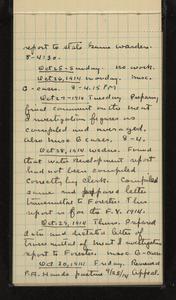 report to state Game warden.
8-4:30.
Oct 25-Sunday. no work.
Oct 26, 1914 Monday. misc.
G-cases. 8-4.15 PM
Oct 27-1914 Tuesday. Prepary
final comment on the meat
investigation figures as
compiled and averaged.
Also misc G cases. 8-4.
Oct 28, 1914 Wednes. Found
that water development report
had not been compiled
correctly by clerk. Compiled
same and prepared letter
transmitted to Forester. This
report is for the F.Y. 1914.
Oct 29, 1914 Thurs. Prepared
data and dictated letter of
transmittal of meat investigation
report to Forester. misc G-cases
Oct 30, 1914 Friday. Reviewed
P.A. Hands posted 9/23/14 Appeal.